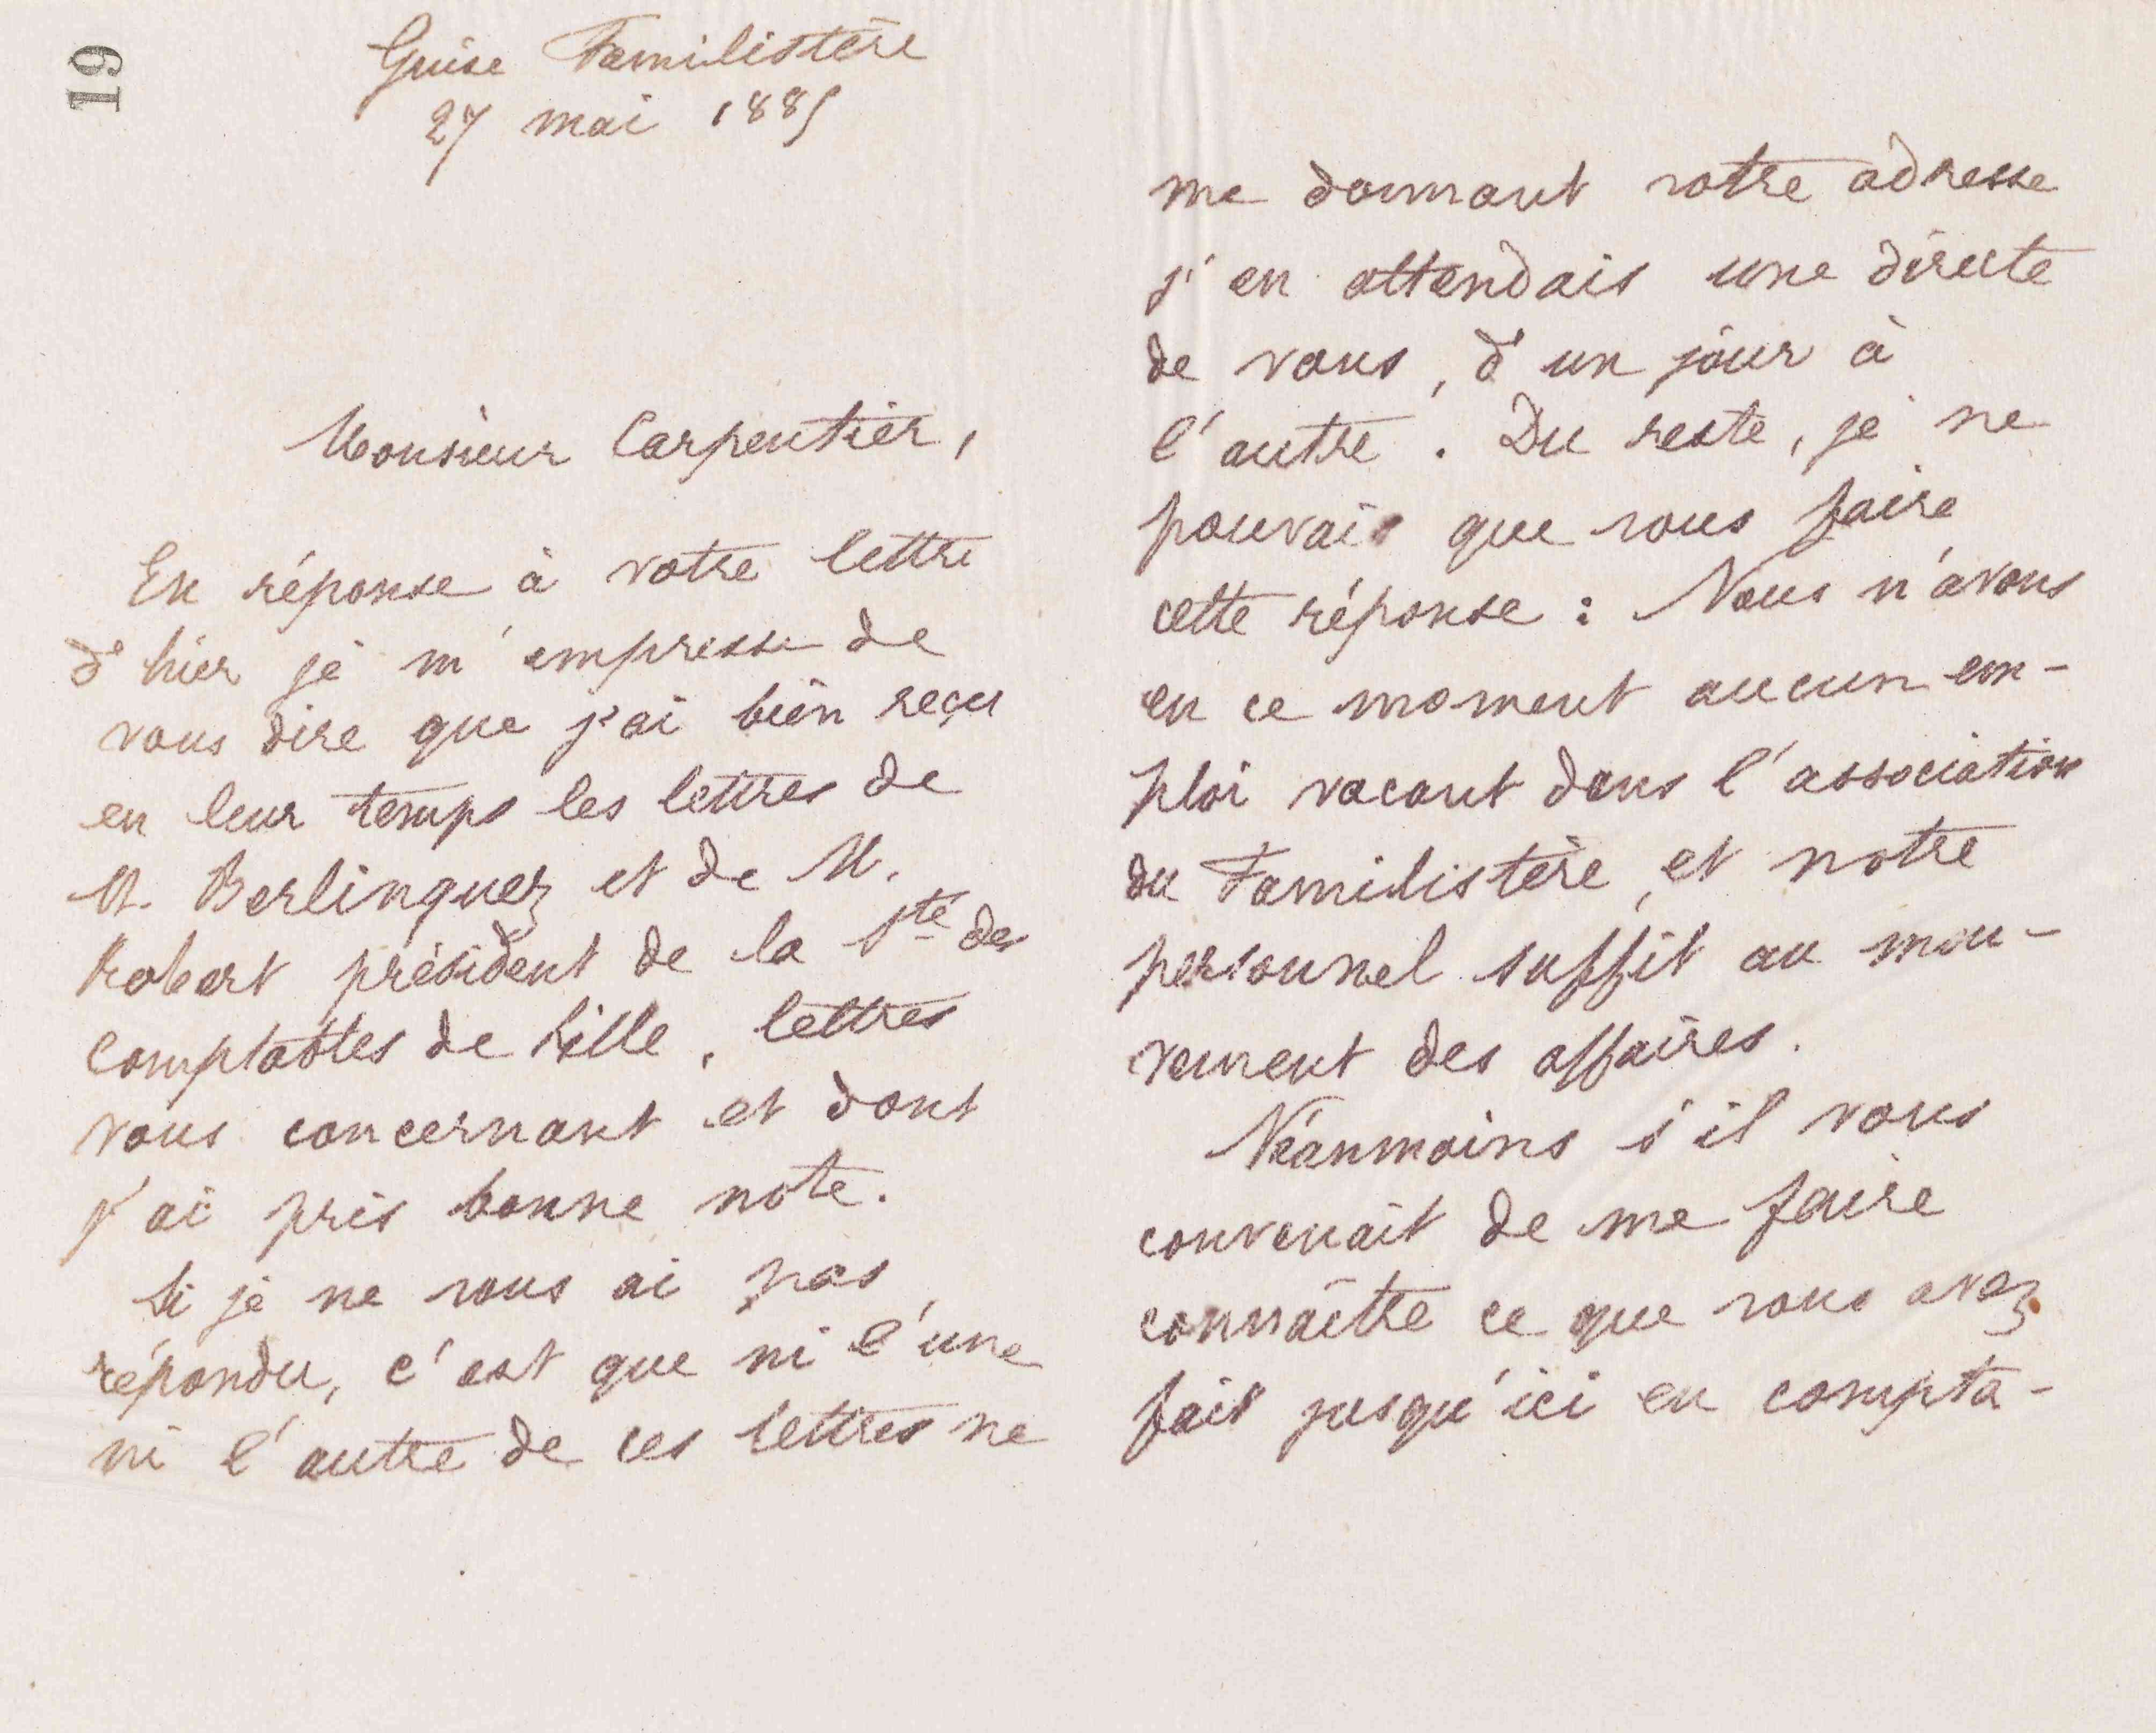 19
Guise Familistère
27 mai 1885
Monsieur Carpentier,
En réponse à votre lettre
d'hier je m'empresse de
vous dire que j'ai bien reçu
en leur temps les lettres de
M. Berlinguez et de M.
Robert président de la Sté des
Comptables de Lille, lettres
vous concernant et dont
j'ai pris bonne note.
Si je ne vous ai pas
répondu, c'est que ni l'une
ni l'autre de ces lettres ne
me donnant votre adresse
j'en attendais une directe
de vous, d'un jour à
l'autre. Du reste, je ne
pouvais que vous faire
cette réponse : Nous n'avons
en ce moment aucun em-
ploi vacant dans l'association
du Familistère, et notre
personnel suffit au mou-
vement des affaires.
Néanmoins s'il vous
convenait de me faire
connaître ce que vous avez
fait jusqu'ici en compta-